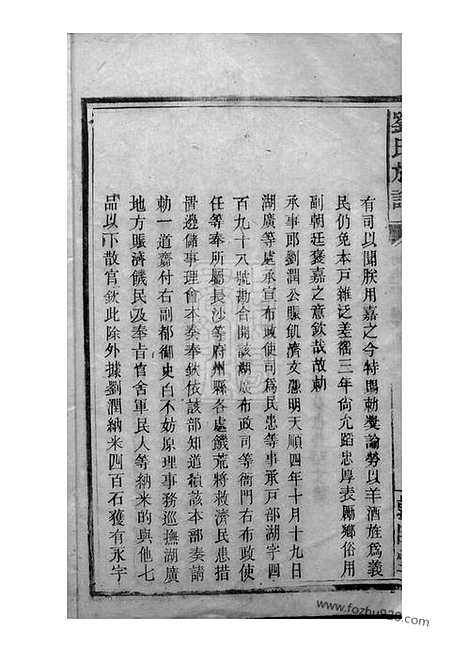 劉氏族譜
有司以聞朕用嘉之今特賜勅獎諭勞以羊酒旌為義
民仍免本戶雜泛差徭三年尙允蹈忠厚表勵鄉俗用
副朝廷褒嘉之意欽哉故勅
承事郎劉潤公賑飢濟文憑明天順四年十月十九日
湖廣等處承宣布政使司為民患等事承戶部湖字四
百九十八號勘合開該湖廣布政司等衙門右布政使
任等奉所屬長沙等府州縣各處饑荒將救濟民患措
置邊儲事理會本奏奉欽依該部知道續該本部奏請
勅一道齎付右副都御史白不妨原理事務巡撫湖廣
地方賑濟饑民及奉吉官舍軍民人等納米的與他七
品以下散官欽此除外據劉潤納米四百石獲有永字
www.fozhu920.com